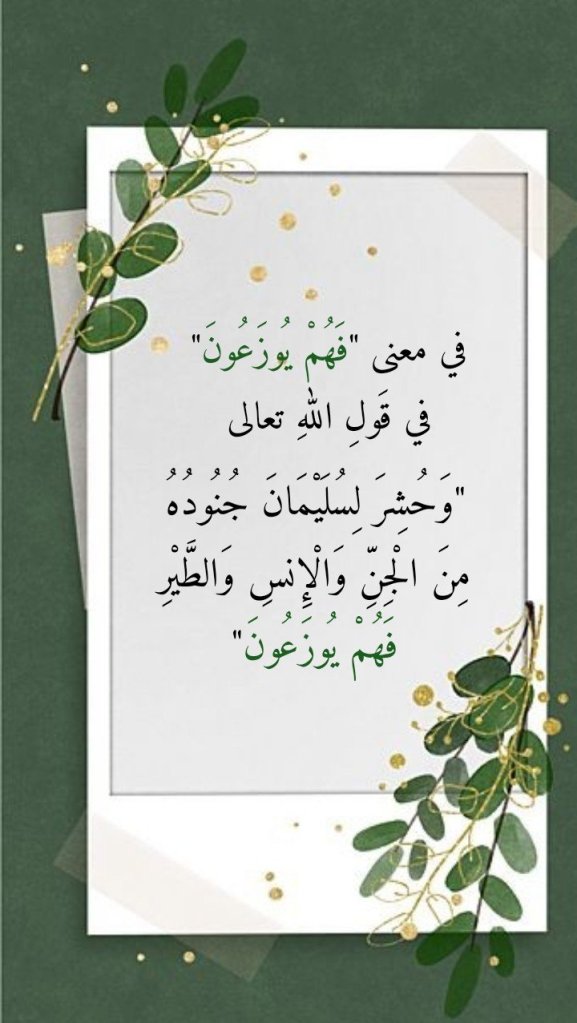 في معنى "فَهُمْ يُوزَعُونَ"
في قَولِ اللهِ تعالى
"وَحُشِرَ لِسُلَيْمَانَ جُنُودُهُ
مِنَ الْجِنِّ وَالْإِنسِ وَالطَّيْرِ
فَهُمْ يُوزَعُونَ"